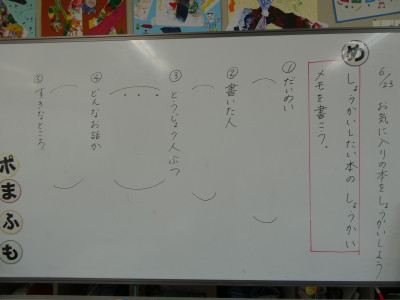 6/23 お気に入りの本をしょうかいしよう
め
しょうかいしたい本の しょうかい
メモを書こう。
①だいめい
②書いた人
③とうじょう人ぶつ
④どんなお話か
⑤すきなところ
ポまふも